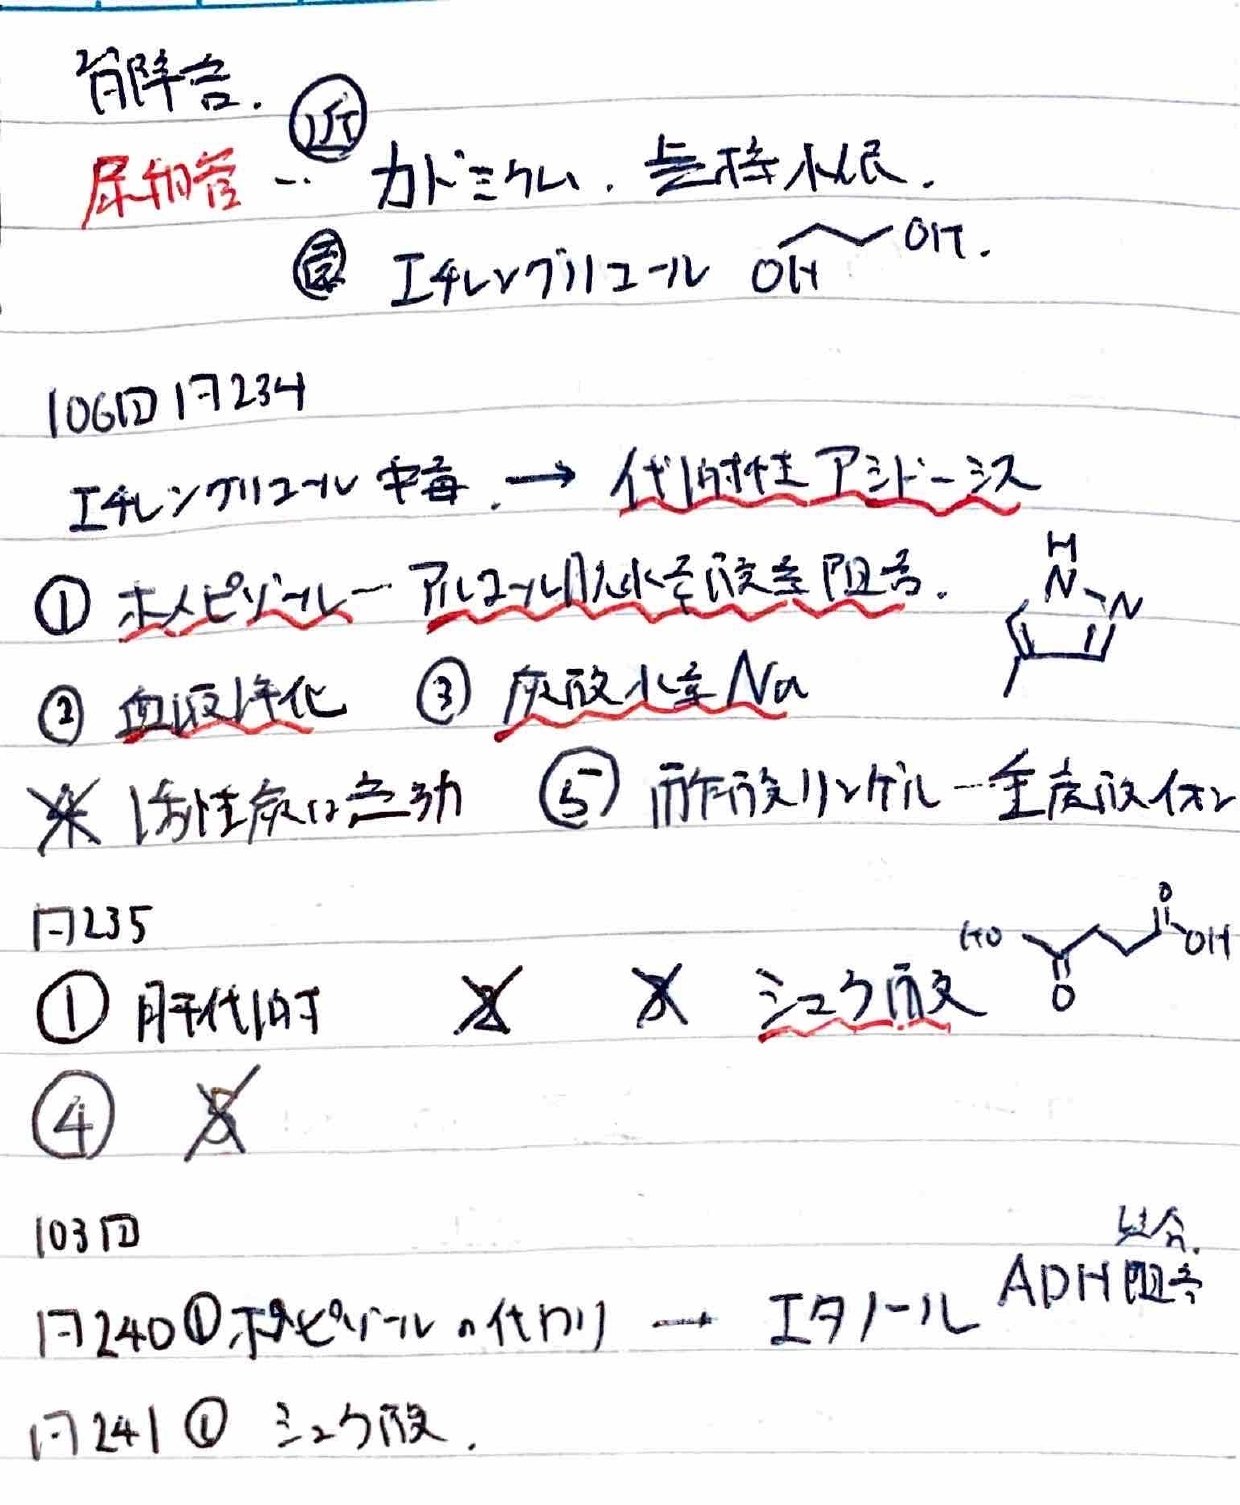 腎障害.
尿細管 … 近 カドミウム. 無機水銀.
エチレングリコール OH OH.
106回 問234
エチレングリコール中毒. → 代謝性アシドーシス
① ホメピゾール - アルコール脱水素酵素阻害. H N N
② 血液浄化 ③ 炭酸水素Na
4 活性炭は無効 ⑤ 酢酸リンゲル - 重炭酸イオン
問235
① 肝代謝 2 3 シュウ酸 HO O O OH
④ 5
103回
問240 ① ホメピゾールの代わり → エタノール ADH阻害
問241 ① シュウ酸.